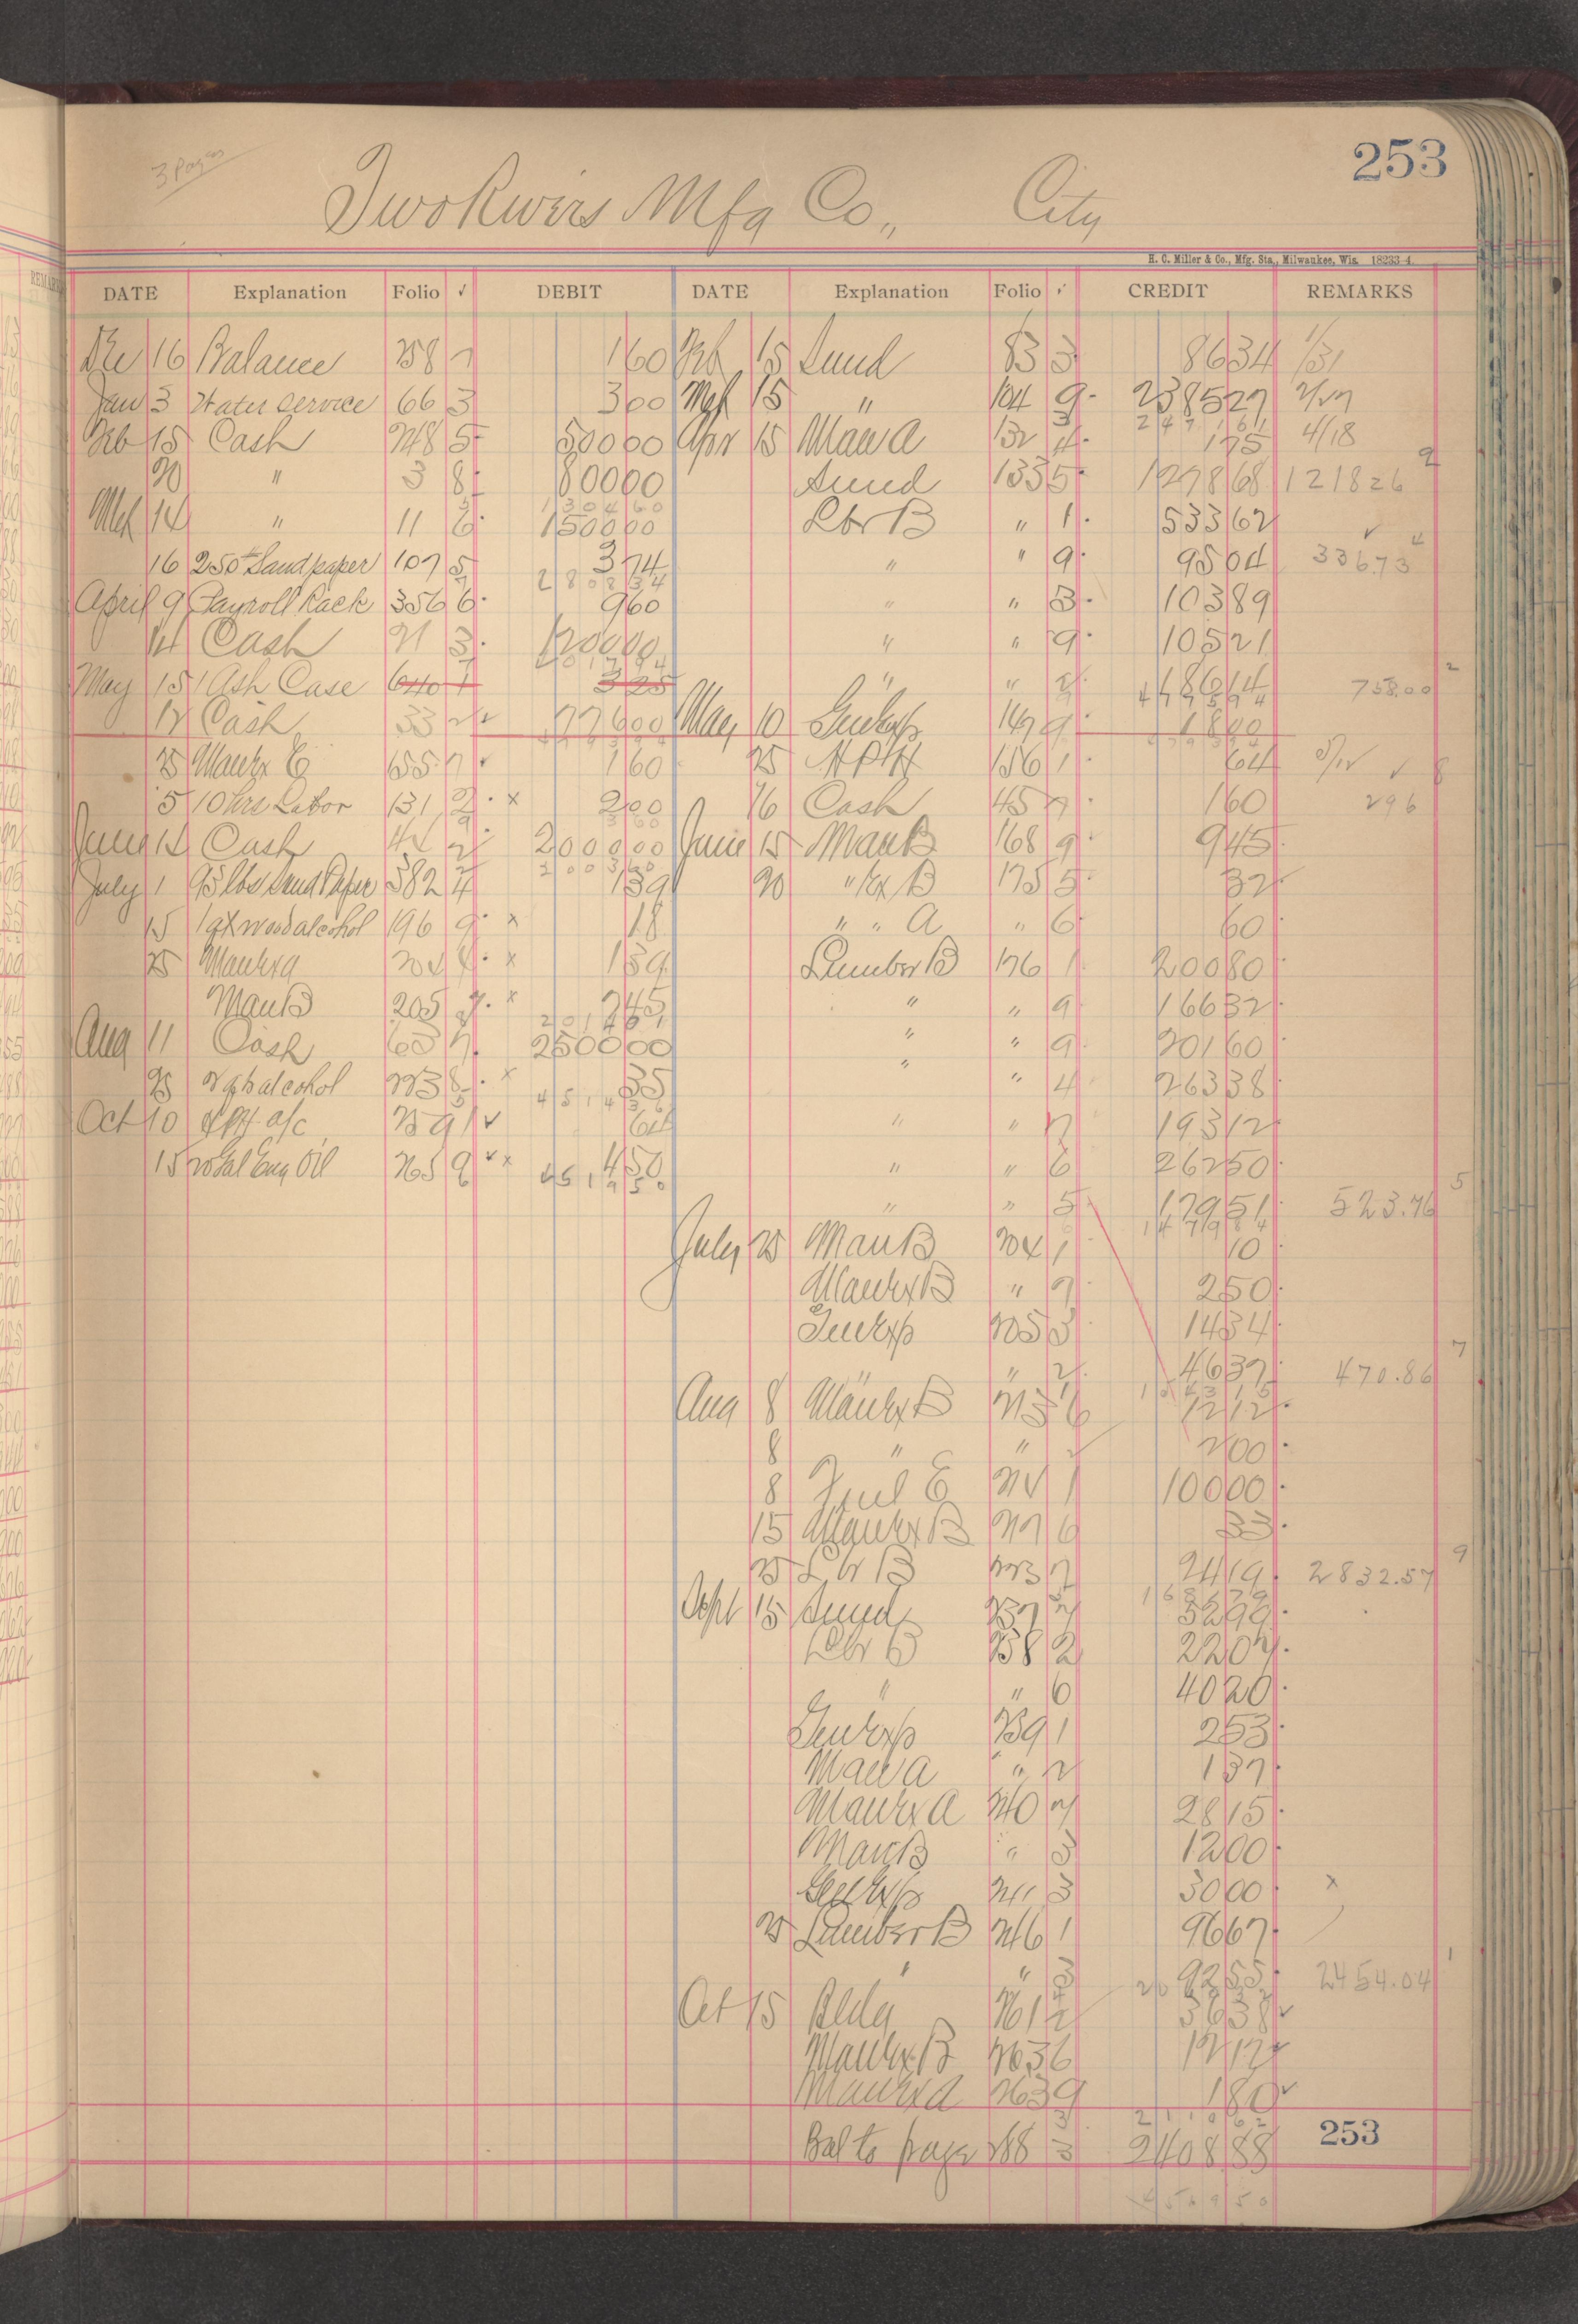 253
3 Pages
Two Rivers Mfg Co., City
H. C. Miller & Co., Mfg. Sta., Milwaukee, Wis. 18233-4.
DATE Explanation Folio ✓ DEBIT DATE Explanation Folio ✓ CREDIT REMARKS
Dec 16 Balance 258 7 1 60 Feb 15 Sund 83 3 86 34 1/31
Jan 3 Water Service 66 3 3 00 Mch 15 " 104 9 2385 27
Feb 15 Cash 248 5 500 00 Apr 15 Man A 132 4 1 75 4/18
20 " 3 8 800 00 Sund 133 5 1278 68 1218 26
1304 60
Mch 14 " 11 6 1500 00 Lbr B " 1 533 62
16 250 Sandpaper 107 5 3 74 " " 9 95 04 336.73
2808 34
April 9 Payroll Rack 356 6 9 60 " " 3 103 89
14 Cash 21 3 1200 00 " " 9 105 21
May 15 1 Ash Case 640 1 3 25 " " 2 186 14 758.00
12 Cash 33 2 776 00 May 10 Gen Exp 147 9 18 00
25 Man Ex E 155 7 1 60 25 H P H 156 1 64
5 10 hrs Labor 131 2 x 2 00 26 Cash 45 7 1 60 296
June 12 Cash 44 2 2000 00 June 15 Man B 168 9 9 45
2003 60
July 1 95 lbs Sand Paper 382 4 1 39 20 " Ex B 175 5 32
15 1 qt wood alcohol 196 9 x 18 " " A " 6 60
25 Man Ex A 204 4 x 1 39 Lumber B 176 1 200 80
Man B 205 9 x 2 45 " " 9 166 32
Aug 11 Cash 60 7 2500 00 " " 9 201 60
25 2 qts alcohol 223 8 x 35 " " 4 263 38
Oct 10 HPH a/c 259 1 64 " " 7 193 12
15 20 Gal Eng Oil 265 9 x 4 50 " " 6 262 50
4519 50
" " 5 179 51 523.76
July 25 Man B 204 1 10
Man Ex B " 7 2 50
Gen Exp 205 3 14 34
" " 2 46 37 470.86
Aug 8 Man Ex B 213 6 12 12
8 " " 2 00
8 Fuel E 214 1 100 00
15 Man Ex B 217 6 33
25 Lbr B 223 7 24 19 2832.57
Sept 15 Sund 237 7 52 99
Lbr B 238 2 22 07
" " 6 40 20
Gen Exp 239 1 2 53
Man A " 2 1 37
Man Ex A 240 7 28 15
Man B " 3 12 00
Gen Exp 241 3 30 00 x
25 Lumber B 246 1 96 67
" " 3 92 55 2454.04
Oct 15 Bldg 261 2 36 38
Man Ex B 263 6 12 12
Man Ex A 263 9 1 80
Bal to page 288 3 2408 88
253